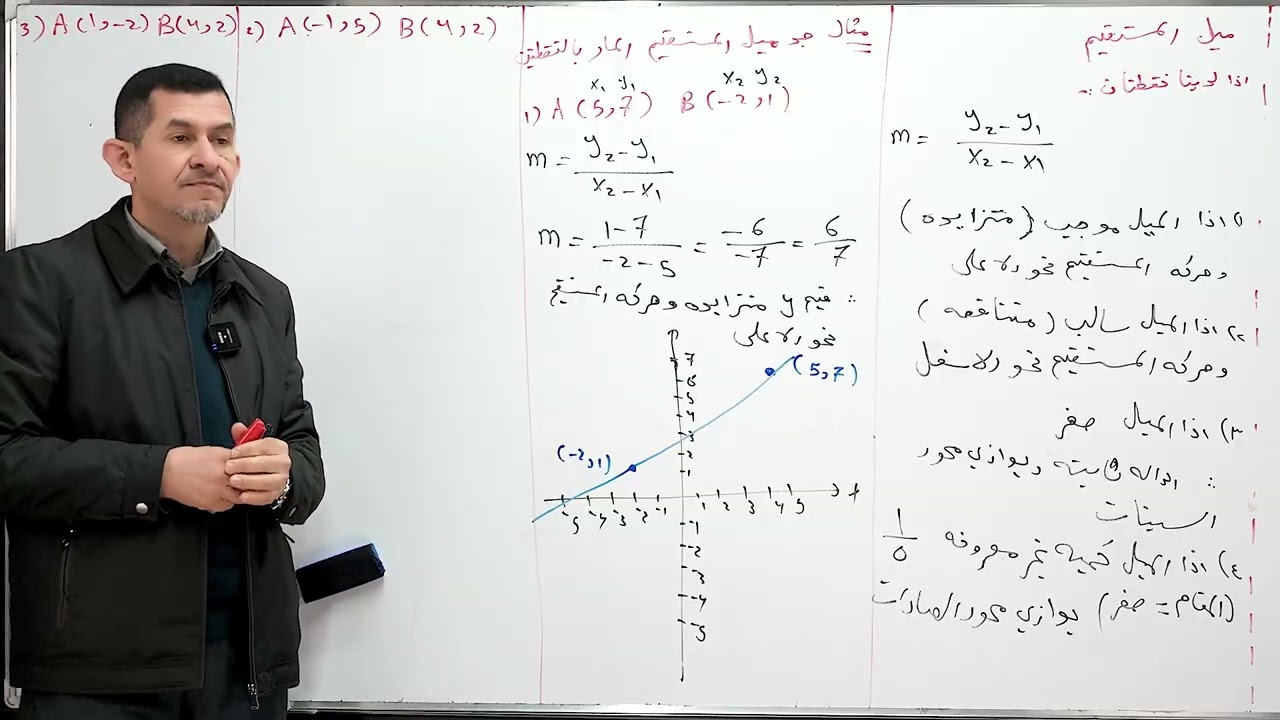 ميل المستقيم
اذا لدينا نقطتان :-
m = y₂ - y₁ / x₂ - x1
١) اذا الميل موجب (متزايده)
وحركه المستقيم نحو الاعلى
٢) اذا الميل سالب (متناقصه)
وحركه المستقيم نحو الاسفل
٣) اذا الميل صفر
∴ الداله ثابته ويوازي محور
السينات
٤) اذا الميل كميه غير معروفه 1/0
(المقام = صفر) يوازي محور الصادات
مثال جد ميل المستقيم المار بالنقطتين
x₁ y₁ x₂ y₂
1) A (5,7) B (-2,1)
m = y₂ - y₁ / x₂ - x₁
m = 1-7 / -2-5 = -6 / -7 = 6 / 7
∴ قيم y متزايده وحركه المستقيم
نحو الاعلى
7
6
5
4
3
2
1
(5,7)
(-2,1)
-5 -4 -3 -2 -1 1 2 3 4 5
-1
-2
-3
-4
-5
2) A (-1,5) B (4,2)
3) A (1,-2) B (4,2)